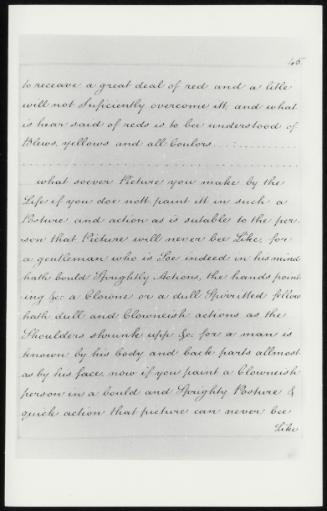 45
to receave a great deal of red and a litle
will not Suficiently overcome itt, and what
is hear said of reds is to bee understood of
Blews, yellows and all Coulors
what soever Picture you make by the
Life if you doe nott paint itt in such a
Posture and action as is sutable to the per-
son that Picture will never bee Like, for
a gentleman who is Soe indeed in his mind
hath bould Sprightly Actions, the hands point-
ing &c: a Clowne or a dull Spirritted fellow
hath dull and Clowneish actions as the
Shoulders shrunk upp &c: for a man is
known by his body and back parts allmost
as by his face, now if you paint a Clowneish
person in a bould and Sprighty Posture &
quick action that picture can never bee
Like